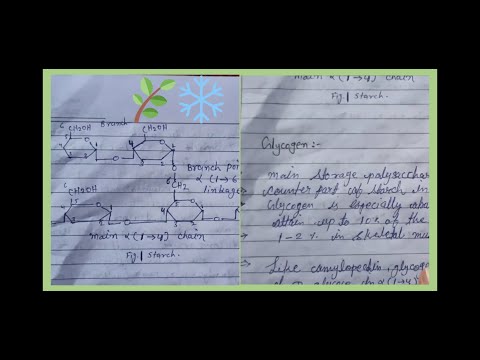 Branch
6 CH2OH
CH2OH
Branch poi
α (1→6
linkage
CH2OH
CH2
main α(1→4) chain
Fig | Starch.
main α(1→4) chain
Fig | Starch.
Glycogen:-
main storage polysacchar
Counter part of starch in
Glycogen is especially
up to 10% of the
1-2 % in skeletal mus
→ Like amylopectin, glycoge
of D glucose in α(1→4)